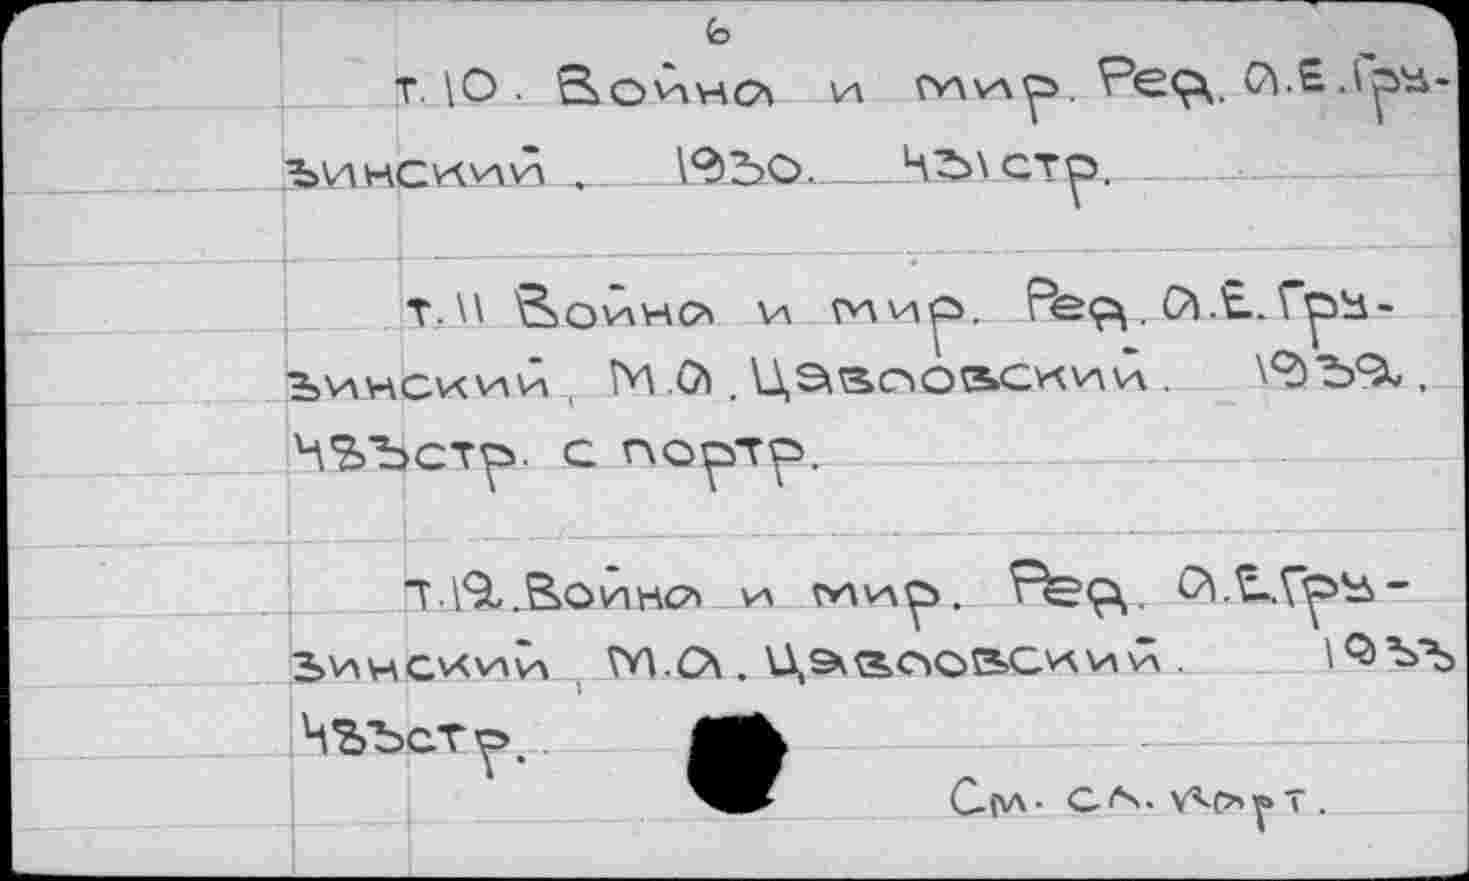 6
т.10. Война и мир. Ред. А.Е.Гру-
зинский. 1930. 431 стр.
т.11 Война и мир. Ред. А.Е.Гру-
зинский, М.А.Цявловский. 1932.
483стр. с портр.
т.12.Война и мир. Ред. А.Е.Гру-
зинский, М.А.Цявловский. 1933
483стр.
См. сл. карт.